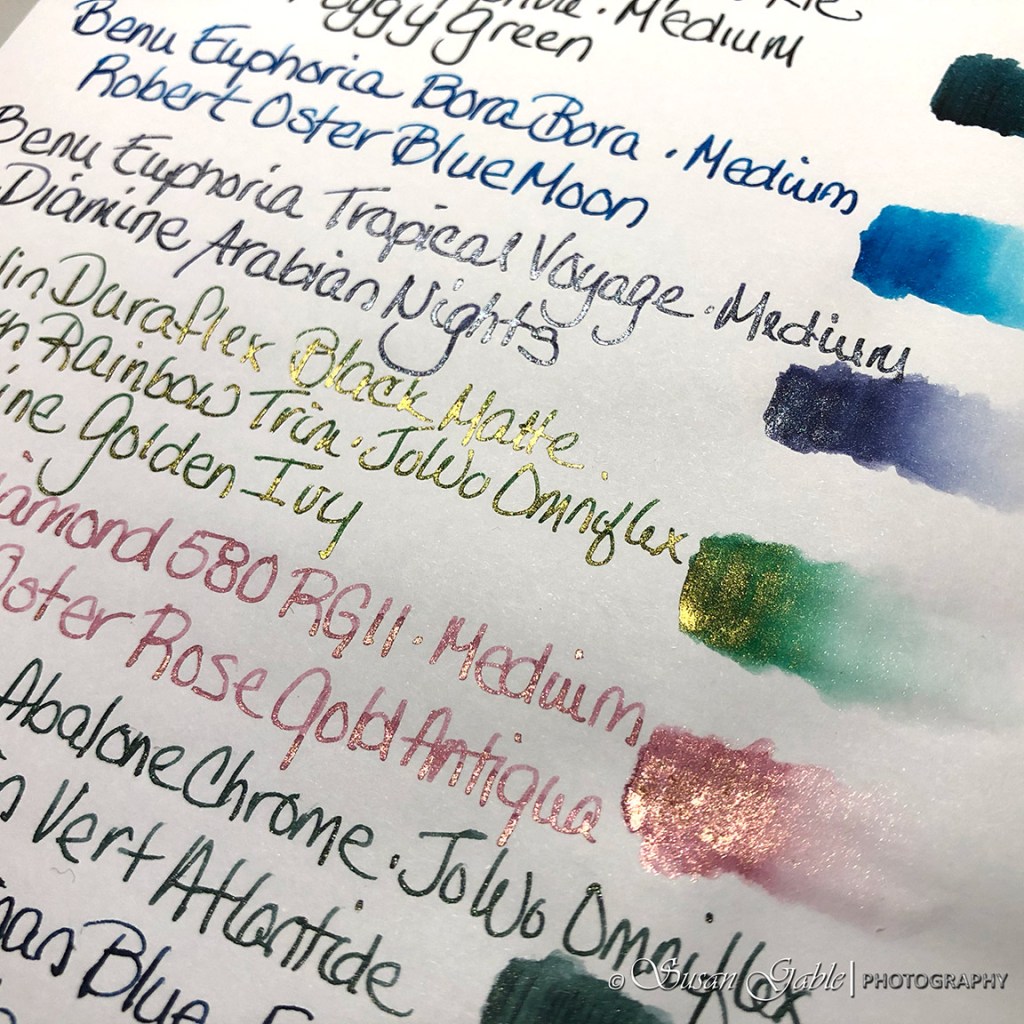 Medium
Foggy Green
Benu Euphoria Bora Bora . Medium
Robert Oster Blue Moon
Benu Euphoria Tropical Voyage . Medium
Diamine Arabian Nights
Duraflex Black Matte .
Rainbow Trim . JoWo Omniflex
Golden Ivy
580 RGII . Medium
Oster Rose Gold Antiqua
Abalone Chrome . JoWo Omniflex
Vert Atlantide
Blue
© Susan Gable | PHOTOGRAPHY